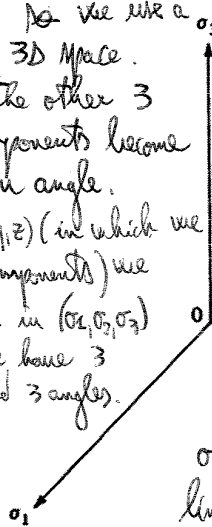 So we use a
σ3
3D space.
the other 3
ponents become
n angle.
y,z) (in which we
mponents) we
in (σ1,σ2,σ3)
e have 3
d 3 angles.
0
σ
lin
σ1